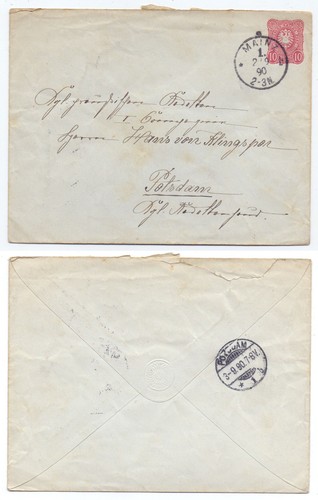 10 10
MAINZ
1.
2 9
90
2-3N.
Kgl. preussischen Kadetten
I. Compagnie
Herrn Hans von Klingspor
Potsdam
Kgl. Kadettenhaus.
POTSDAM
3-9.90.7-8V.
1